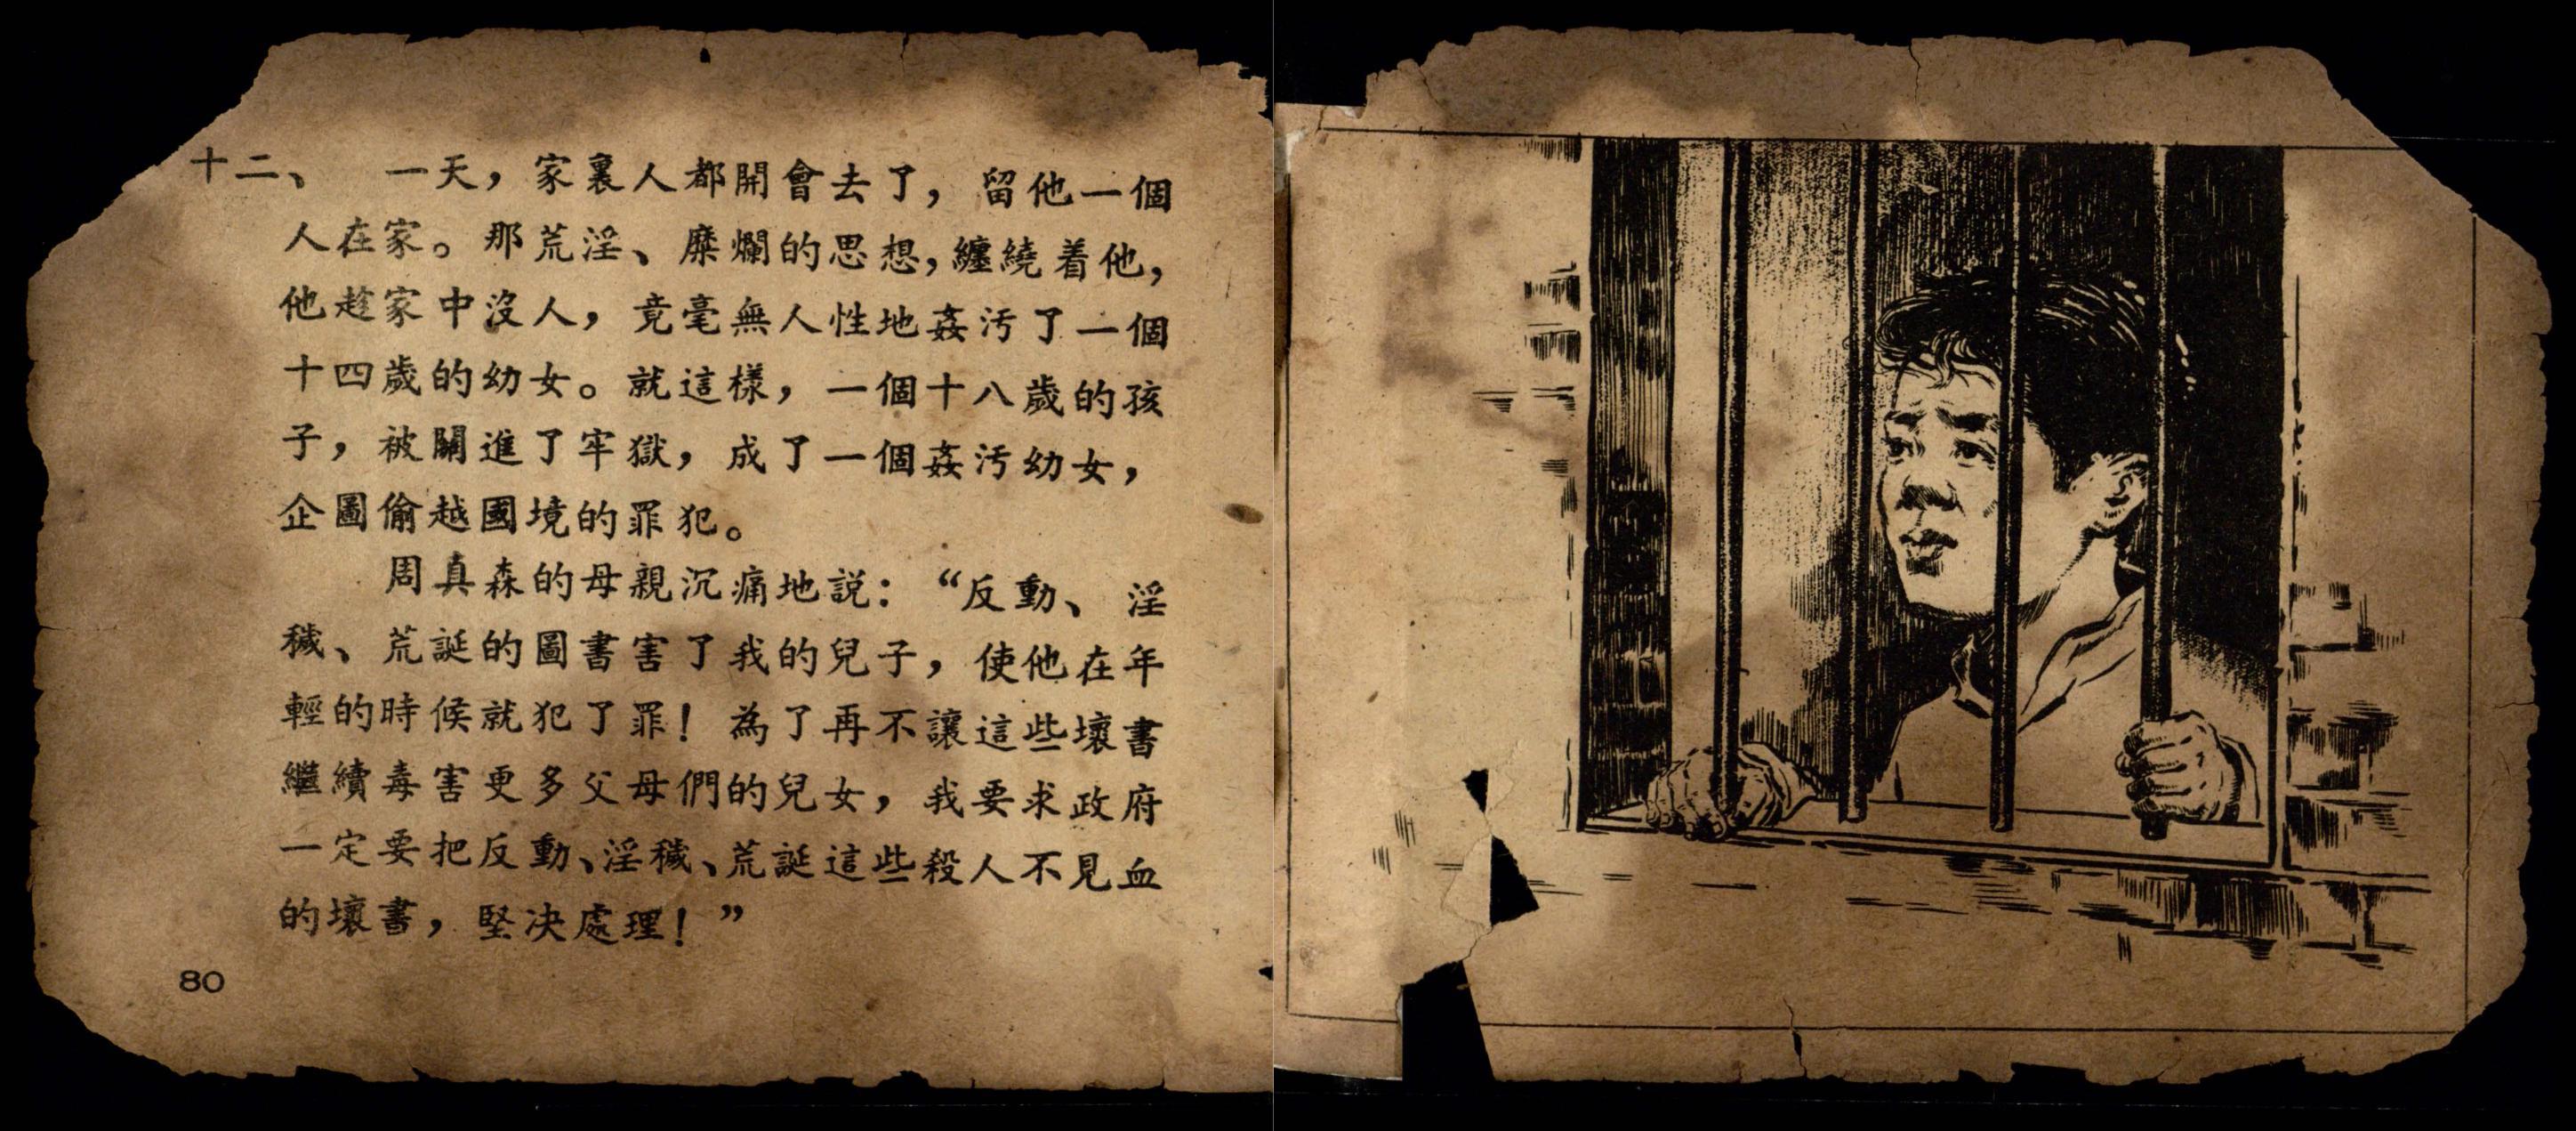 十二、　一天，家裏人都開會去了，留他一個
人在家。那荒淫、糜爛的思想，纏繞着他，
他趁家中沒人，竟毫無人性地姦汚了一個
十四歲的幼女。就這樣，一個十八歲的孩
子，被關進了牢獄，成了一個姦汚幼女，
企圖偷越國境的罪犯。
周真森的母親沉痛地説：“反動、淫
穢、荒誕的圖書害了我的兒子，使他在年
輕的時候就犯了罪！為了再不讓這些壞書
繼續毒害更多父母們的兒女，我要求政府
一定要把反動、淫穢、荒誕這些殺人不見血
的壞書，堅决處理！”
80